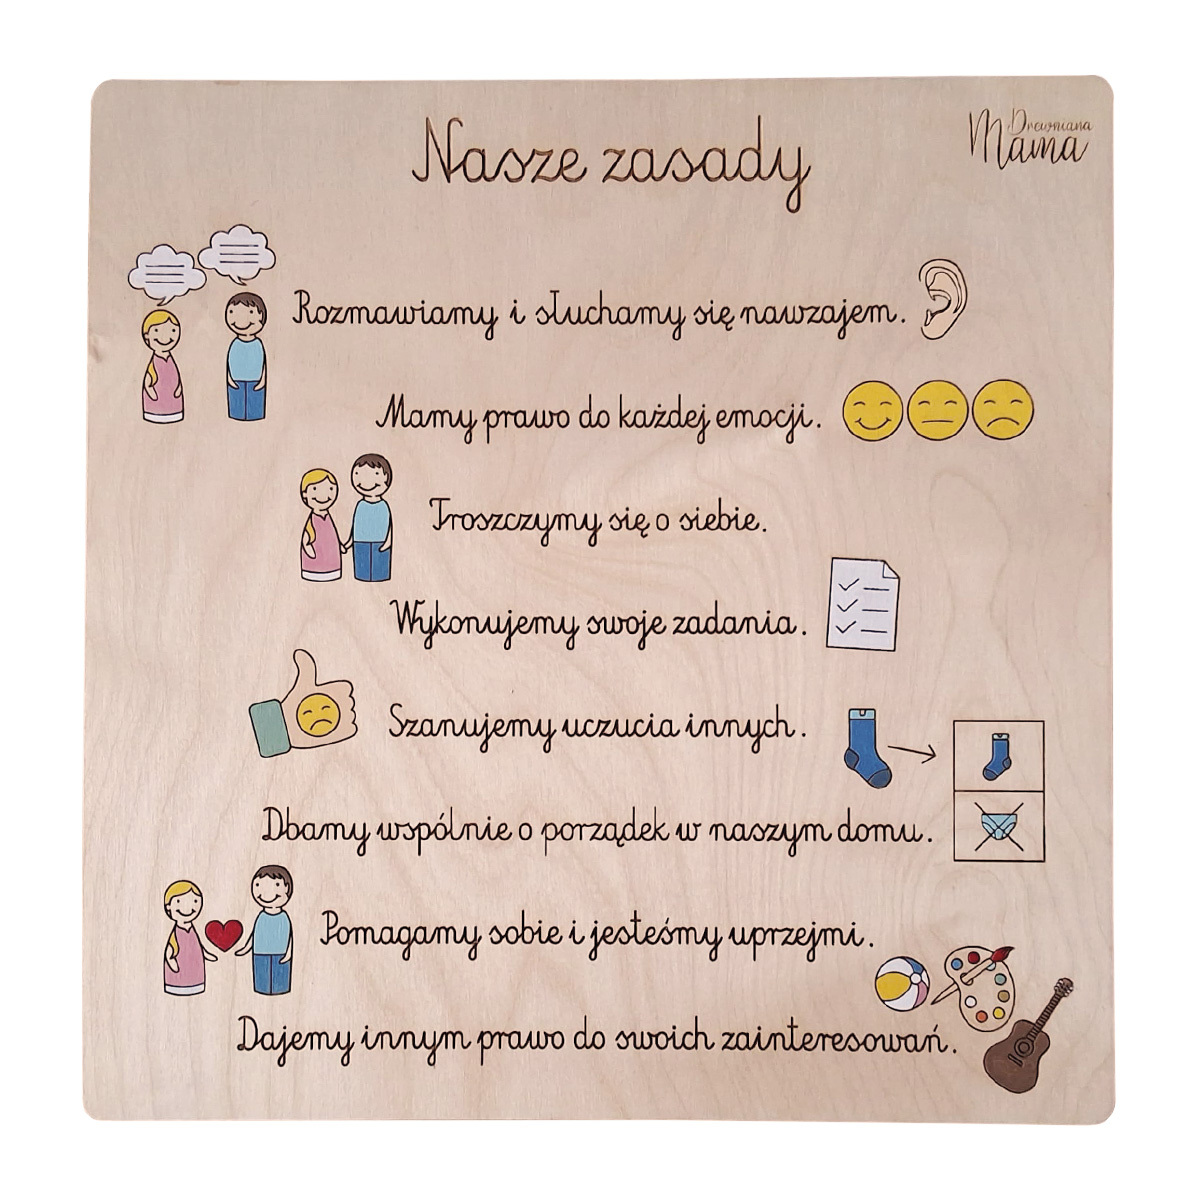 Nasze zasady
Drewniana
Mama
Rozmawiamy i słuchamy się nawzajem.
Mamy prawo do każdej emocji.
Troszczymy się o siebie.
Wykonujemy swoje zadania.
Szanujemy uczucia innych.
Dbamy wspólnie o porządek w naszym domu.
Pomagamy sobie i jesteśmy uprzejmi.
Dajemy innym prawo do swoich zainteresowań.